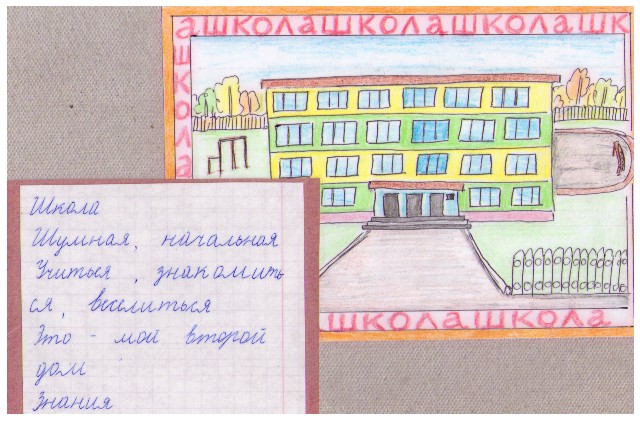 ашколашколашколашк
школа
Школа
Шумная, начальная
Учиться, знакомить
ся, веселиться
Это - мой второй
дом
Знания
школашкола